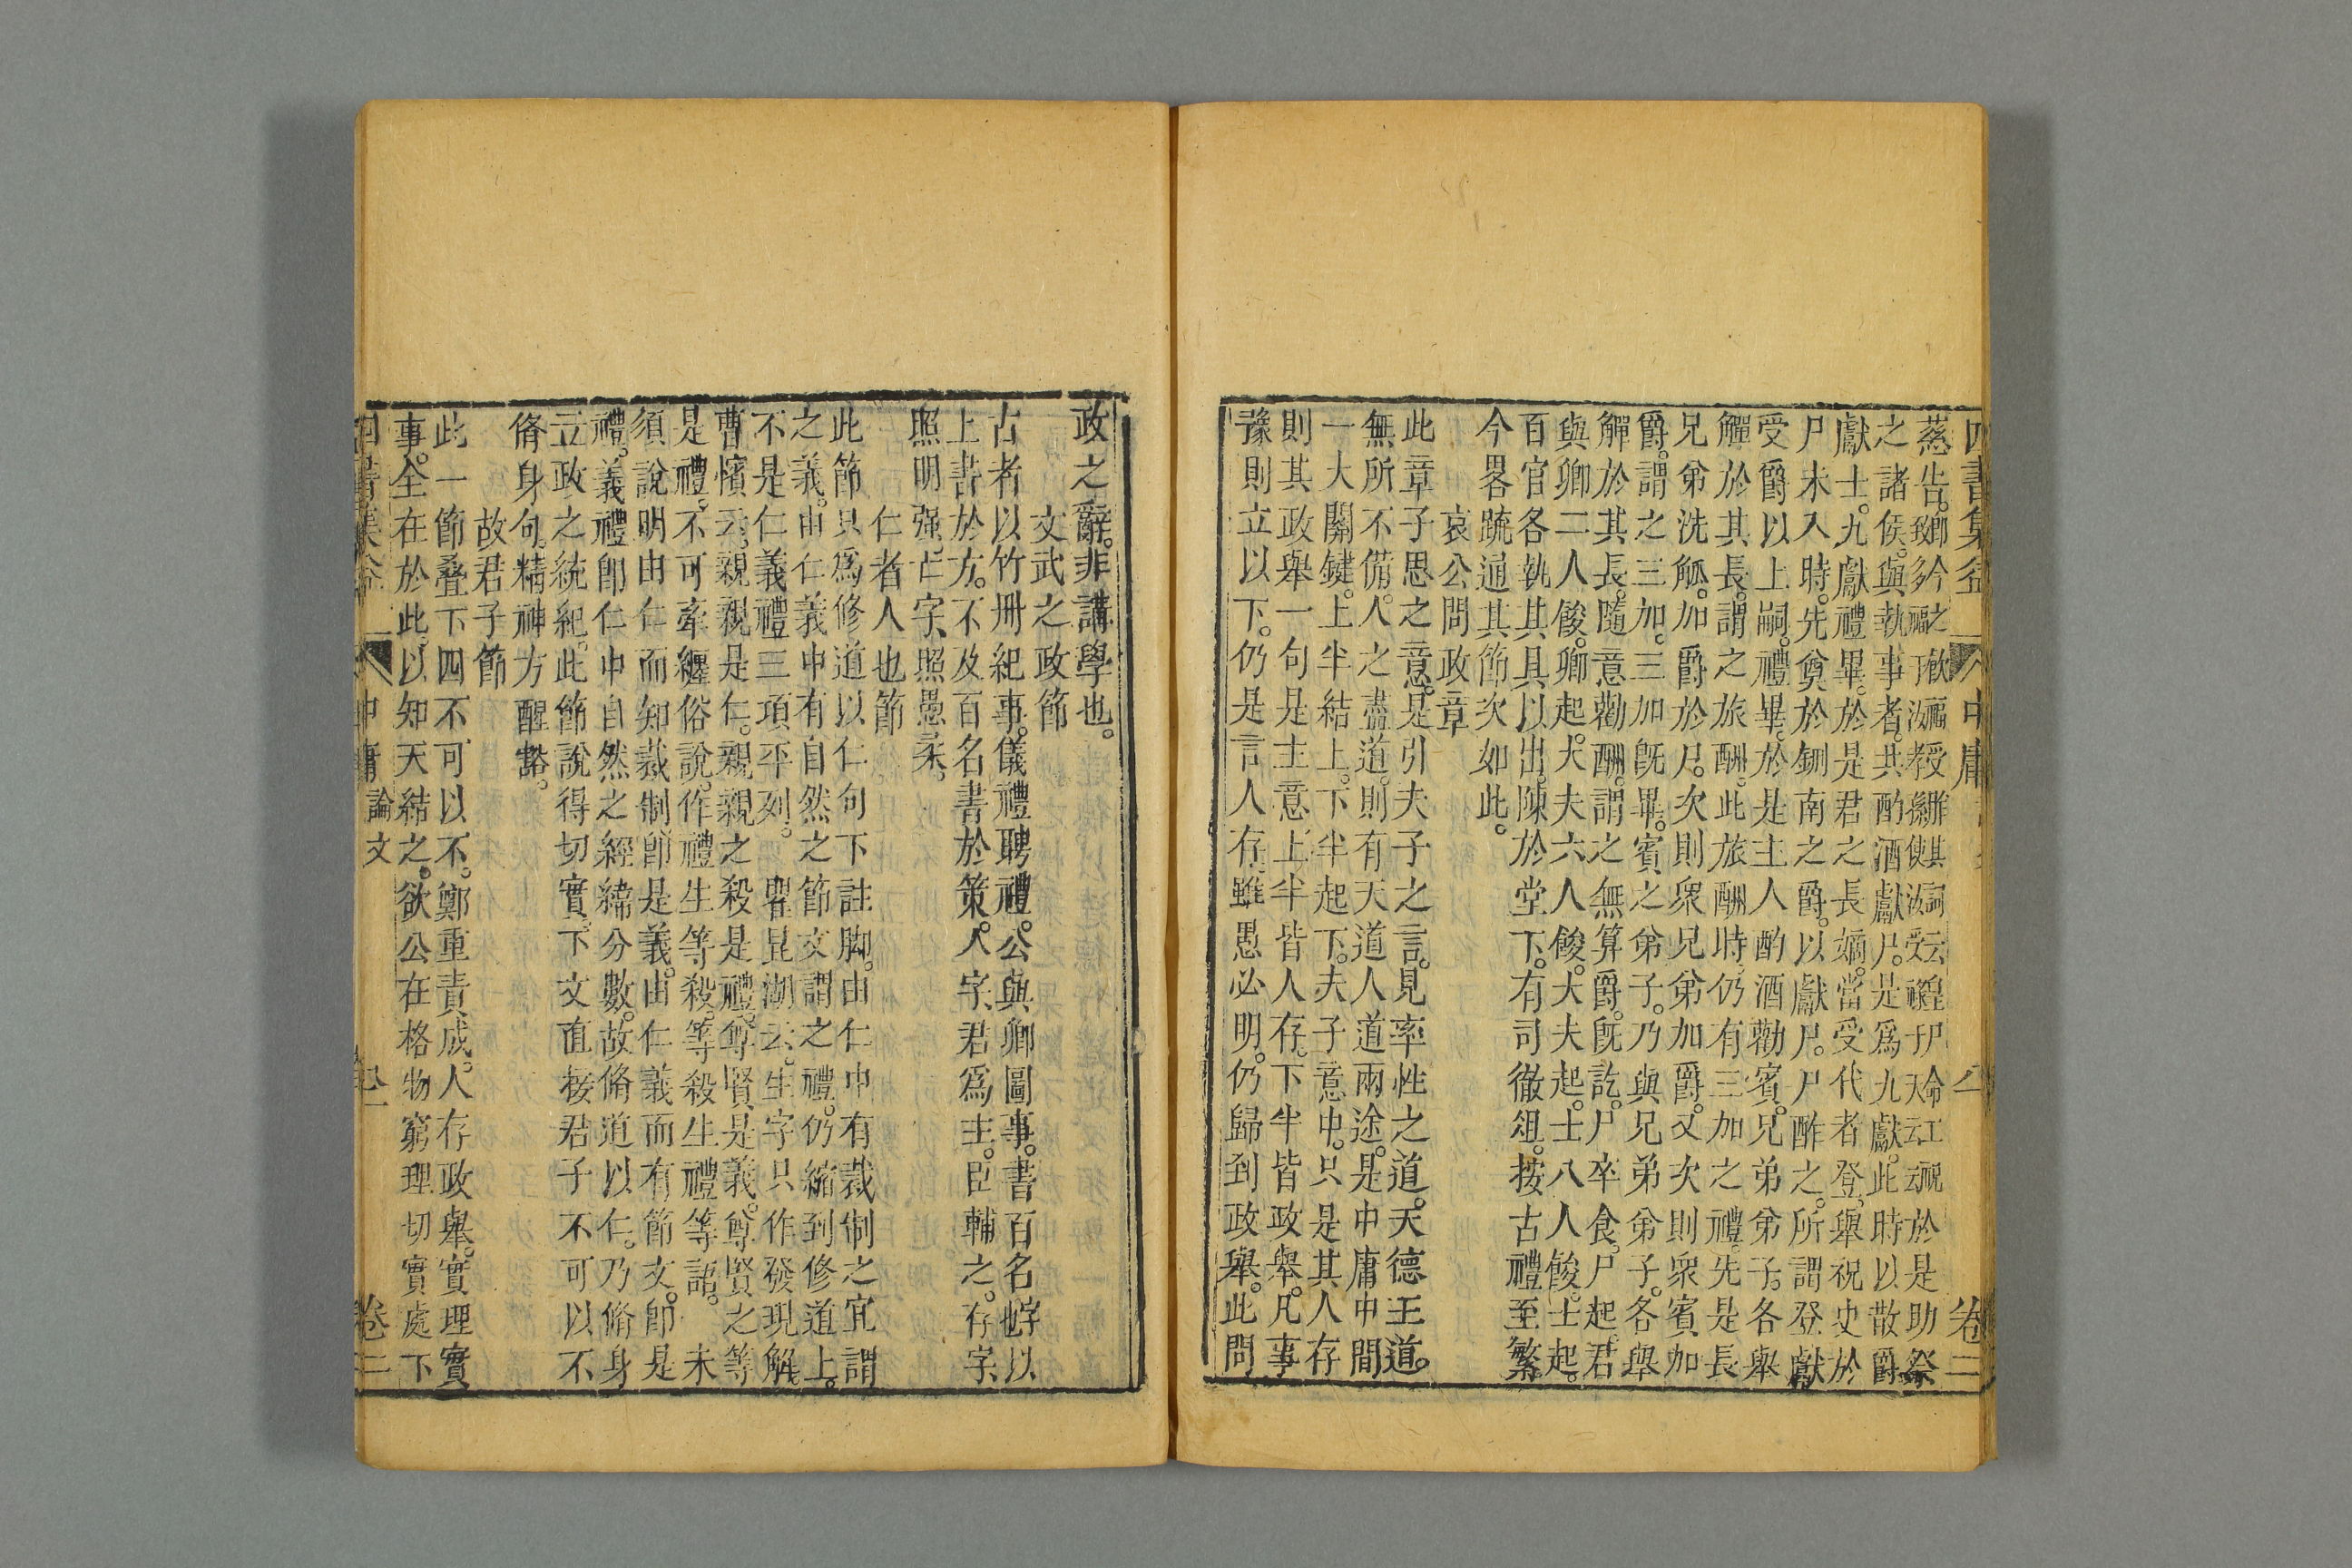 之諸侯與執事者共酌酒獻尸是爲九獻此時以散爵
獻士九獻禮畢於是君之長嫡當受代者登舉祝史於
尸未入時先奠於鉶南之爵以獻尸尸酢之所謂登獻
受爵以上嗣禮畢於是主人酌酒勸賓兄弟弟子各舉
觶於其長謂之旅酬此旅酬時仍有三加之禮先是長
兄弟洗觚加爵於尸次則衆兄弟加爵又次則衆賓加
爵謂之三加三加旣畢賓之弟子乃與兄弟弟子各舉
觶於其長隨意勸酬謂之無算爵旣訖尸卒食尸起君
與卿二人餕卿起大夫六人餕大夫起士八人餕士起
百官各執其具以出陳於堂下有司徹俎按古禮至繁
今畧疏通其節次如此
哀公問政章
此章子思之意是引夫子之言見率性之道天德王道
無所不備人之盡道則有天道人道兩途是中庸中間
一大關鍵上半結上下半起下夫子意中只是其人存
則其政舉一句是主意上半皆人存下半皆政舉凡事
豫則立以下仍是言人存雖愚必明仍歸到政舉此問
政之辭非講學也
文武之政節
古者以竹冊紀事儀禮聘禮公與卿圖事書百名字也以
上書於方不及百名書於策人字君爲主臣輔之存字
照明强亡字照愚柔
仁者人也節
此節只爲修道以仁句下註脚由仁中有裁制之宜謂
之義由仁義中有自然之節文謂之禮仍縮到修道上
不是仁義禮三項平列 瞿昆湖云生字只作發現解
曹憹云親親是仁親親之殺是禮尊賢是義尊賢之等
是禮不可牽纒俗說作禮生等殺等殺生禮等語 未
須說明由仁而知裁制卽是義由仁義而有節文卽是
禮義禮卽仁中自然之經緯分數故脩道以仁乃脩身
立政之統紀此節說得切實下文直接君子不可以不
脩身句精神方醒豁
故君子節
此一節叠下四不可以不鄭重責成人存政舉實理實
事全在於此以知天結之欲公在格物窮理切實處下
中庸 論文 卷二